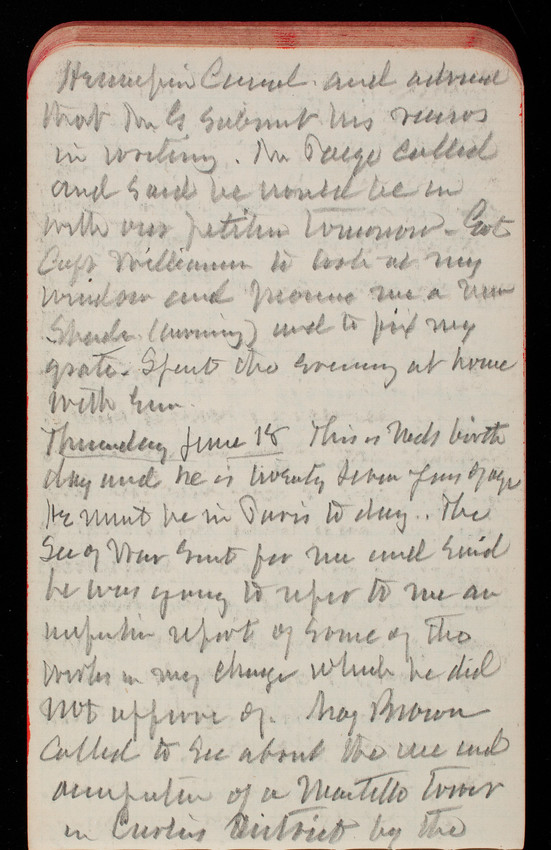 Hennepin Canal and advised
that Mr G submit his reasons
in writing. Mr Paege called
and said he would be in
with our petition tomorrow - Got
Capt Williamson to look at my
window and procure me a new
Shade (awning) and to fix my
grate. Spent the evening at home
with
Thursday June 18 This is Neds birth
day and he is twenty seven years of age
He must be in Paris to day.. The
Sec of War sent for me and said
he was going to refer to me an
inspection report of some of the
works in my charge which he did
not approve of. Maj Brown
called to see about the use and
occupation of a Martello tower
in District by the